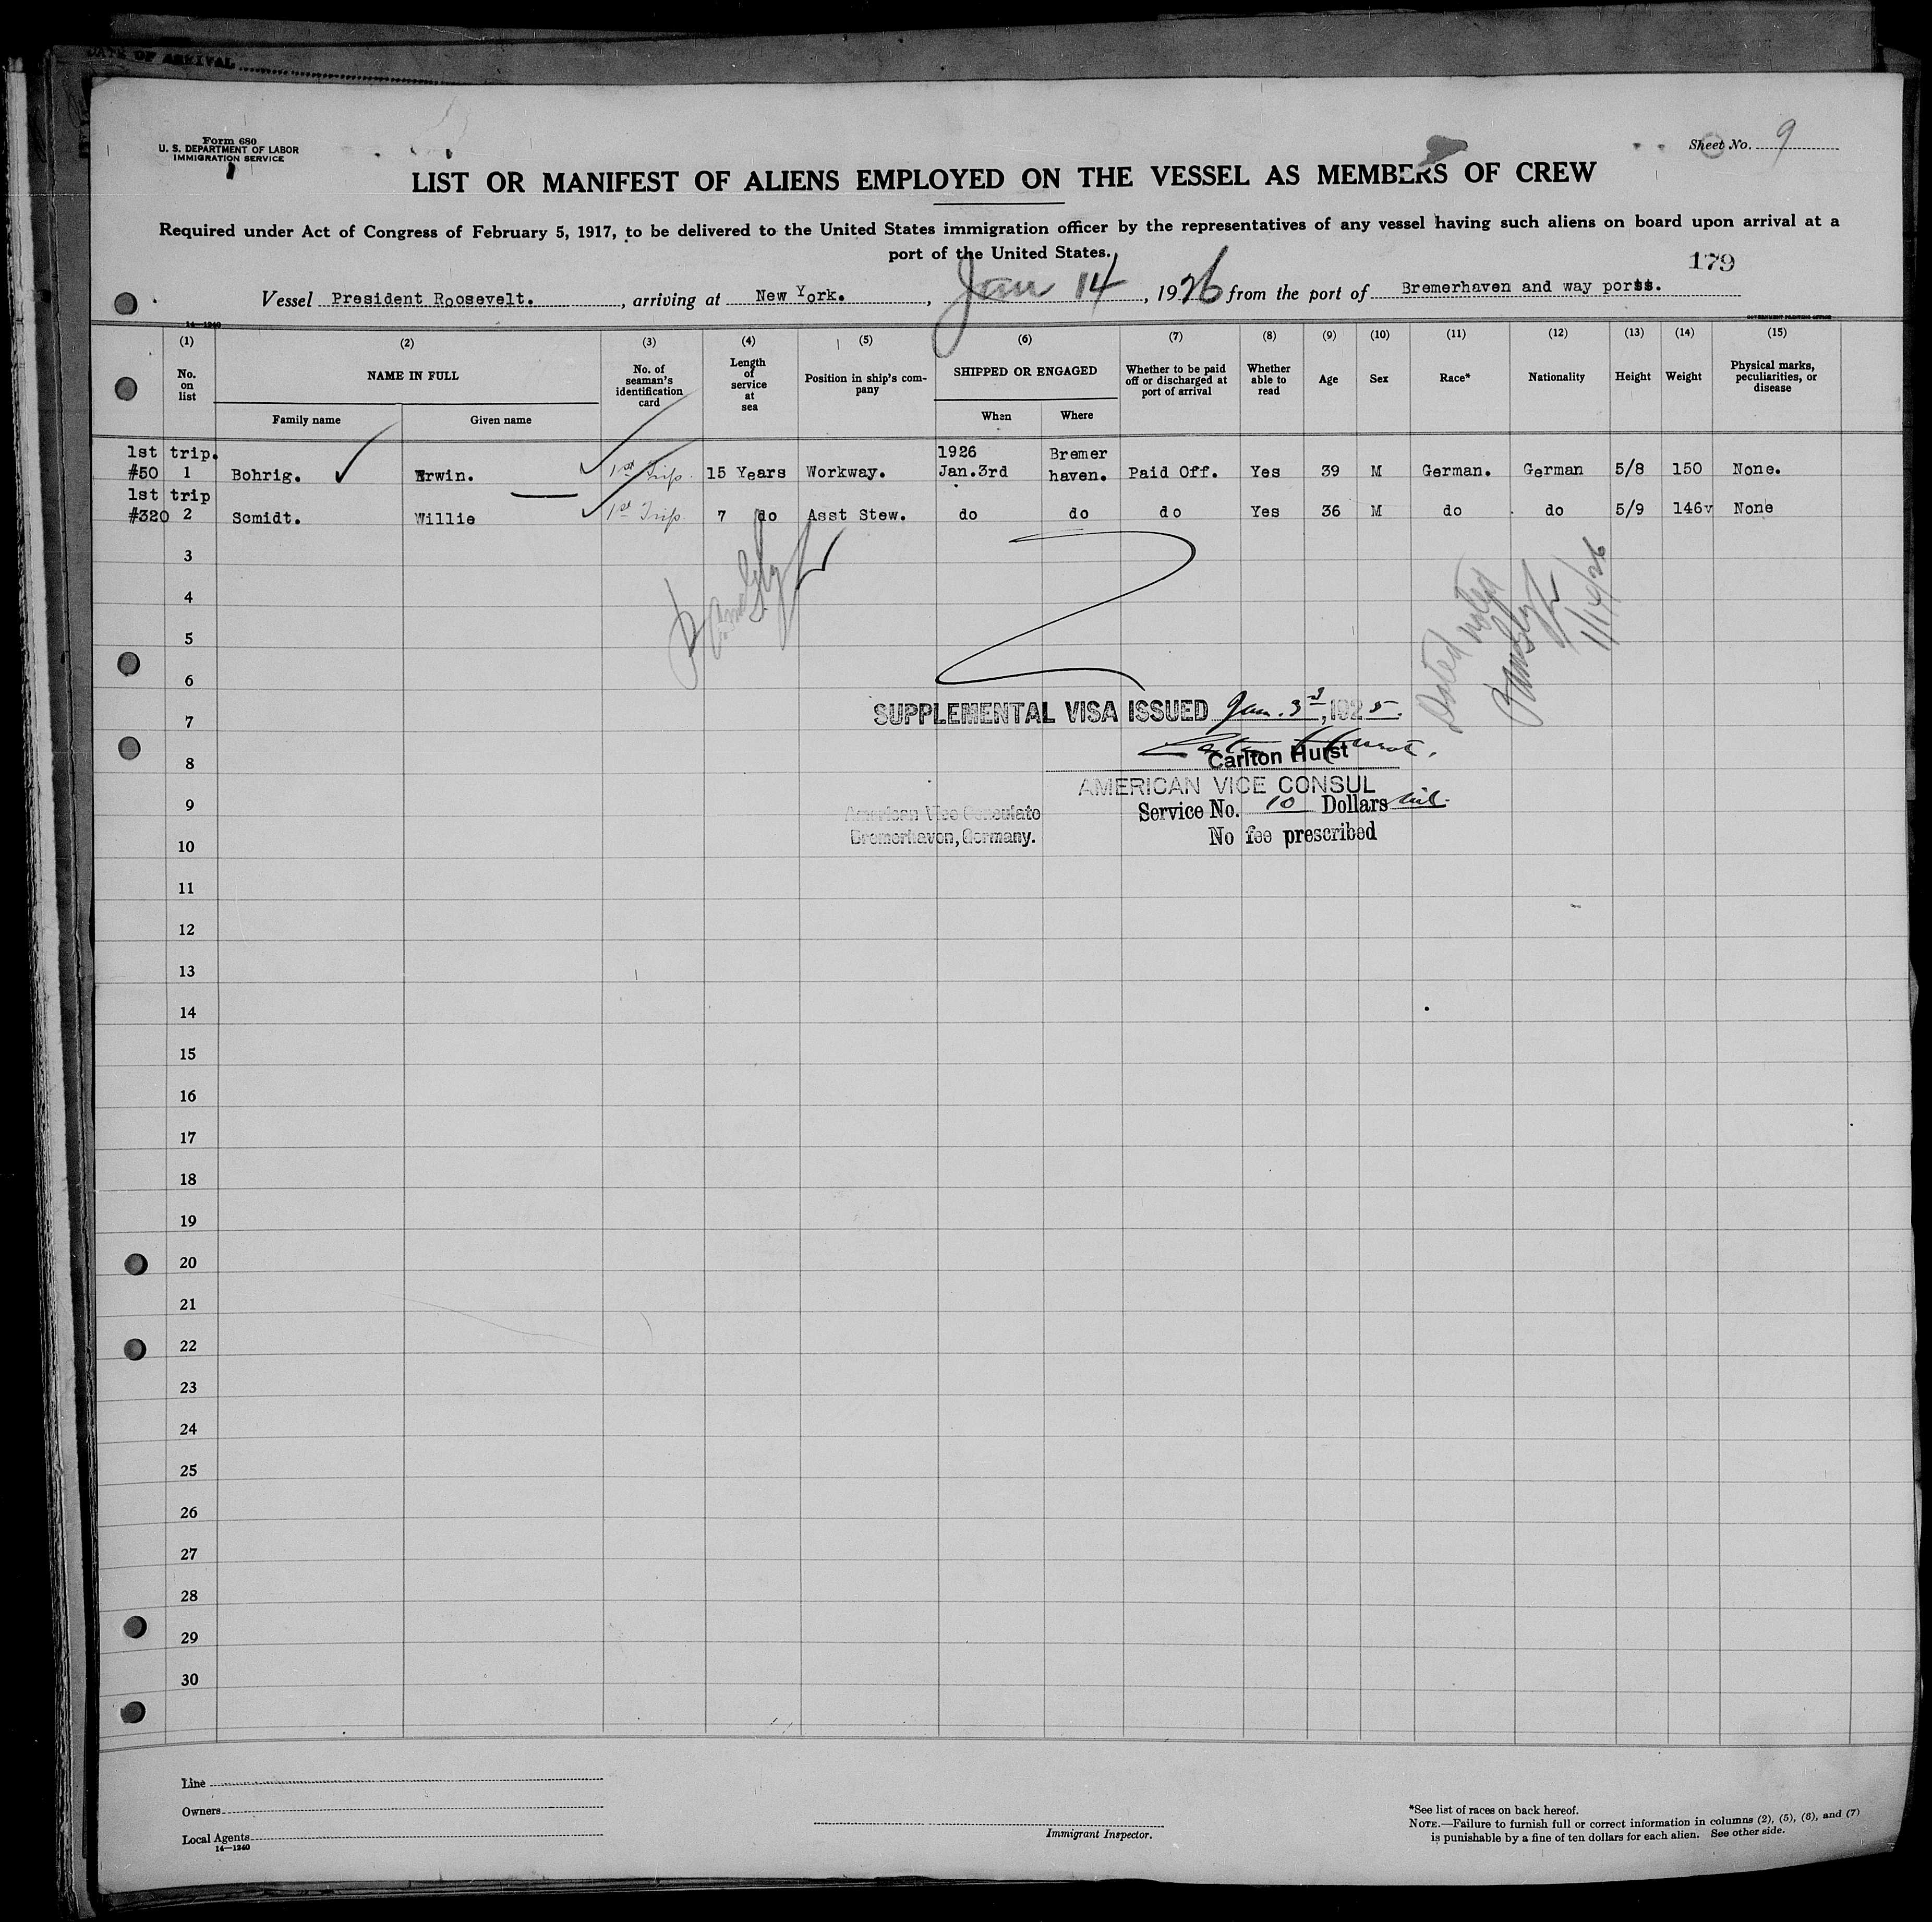 DATE OF ARRIVAL
Form 680
U. S. DEPARTMENT OF LABOR
IMMIGRATION SERVICE
Sheet No. 9
LIST OR MANIFEST OF ALIENS EMPLOYED ON THE VESSEL AS MEMBERS OF CREW
Required under Act of Congress of February 5, 1917, to be delivered to the United States immigration officer by the representatives of any vessel having such aliens on board upon arrival at a
port of the United States.
179
Vessel President Roosevelt. , arriving at New York. , Jan 14 , 1926 from the port of Bremerhaven and way ports.
14—1240
GOVERNMENT PRINTING OFFICE
(1) (2) (3) (4) (5) (6) (7) (8) (9) (10) (11) (12) (13) (14) (15)
No. on list
NAME IN FULL
Family name
Given name
No. of seaman's identification card
Length of service at sea
Position in ship's company
SHIPPED OR ENGAGED
When
Where
Whether to be paid off or discharged at port of arrival
Whether able to read
Age
Sex
Race*
Nationality
Height
Weight
Physical marks, peculiarities, or disease
1st trip. 1926 Bremer
#50 1 Bohrig. Erwin. 1st Trip. 15 Years Workway. Jan.3rd haven. Paid Off. Yes 39 M German. German 5/8 150 None.
1st trip
#320 2 Scmidt. Willie 1st Trip. 7 do Asst Stew. do do do Yes 36 M do do 5/9 146 None
3
4
5
6
7
8
9
10
11
12
13
14
15
16
17
18
19
20
21
22
23
24
25
26
27
28
29
30
1/14/26
SUPPLEMENTAL VISA ISSUED Jan. 3d, 1925.
Carlton Hurst
Carlton Hurst
AMERICAN VICE CONSUL
Service No. 10 Dollars nil.
No fee prescribed
American Vice Consulate
Bremerhaven, Germany.
Line
Owners
Local Agents
14—1240
Immigrant Inspector.
*See list of races on back hereof.
NOTE.—Failure to furnish full or correct information in columns (2), (5), (6), and (7)
is punishable by a fine of ten dollars for each alien. See other side.